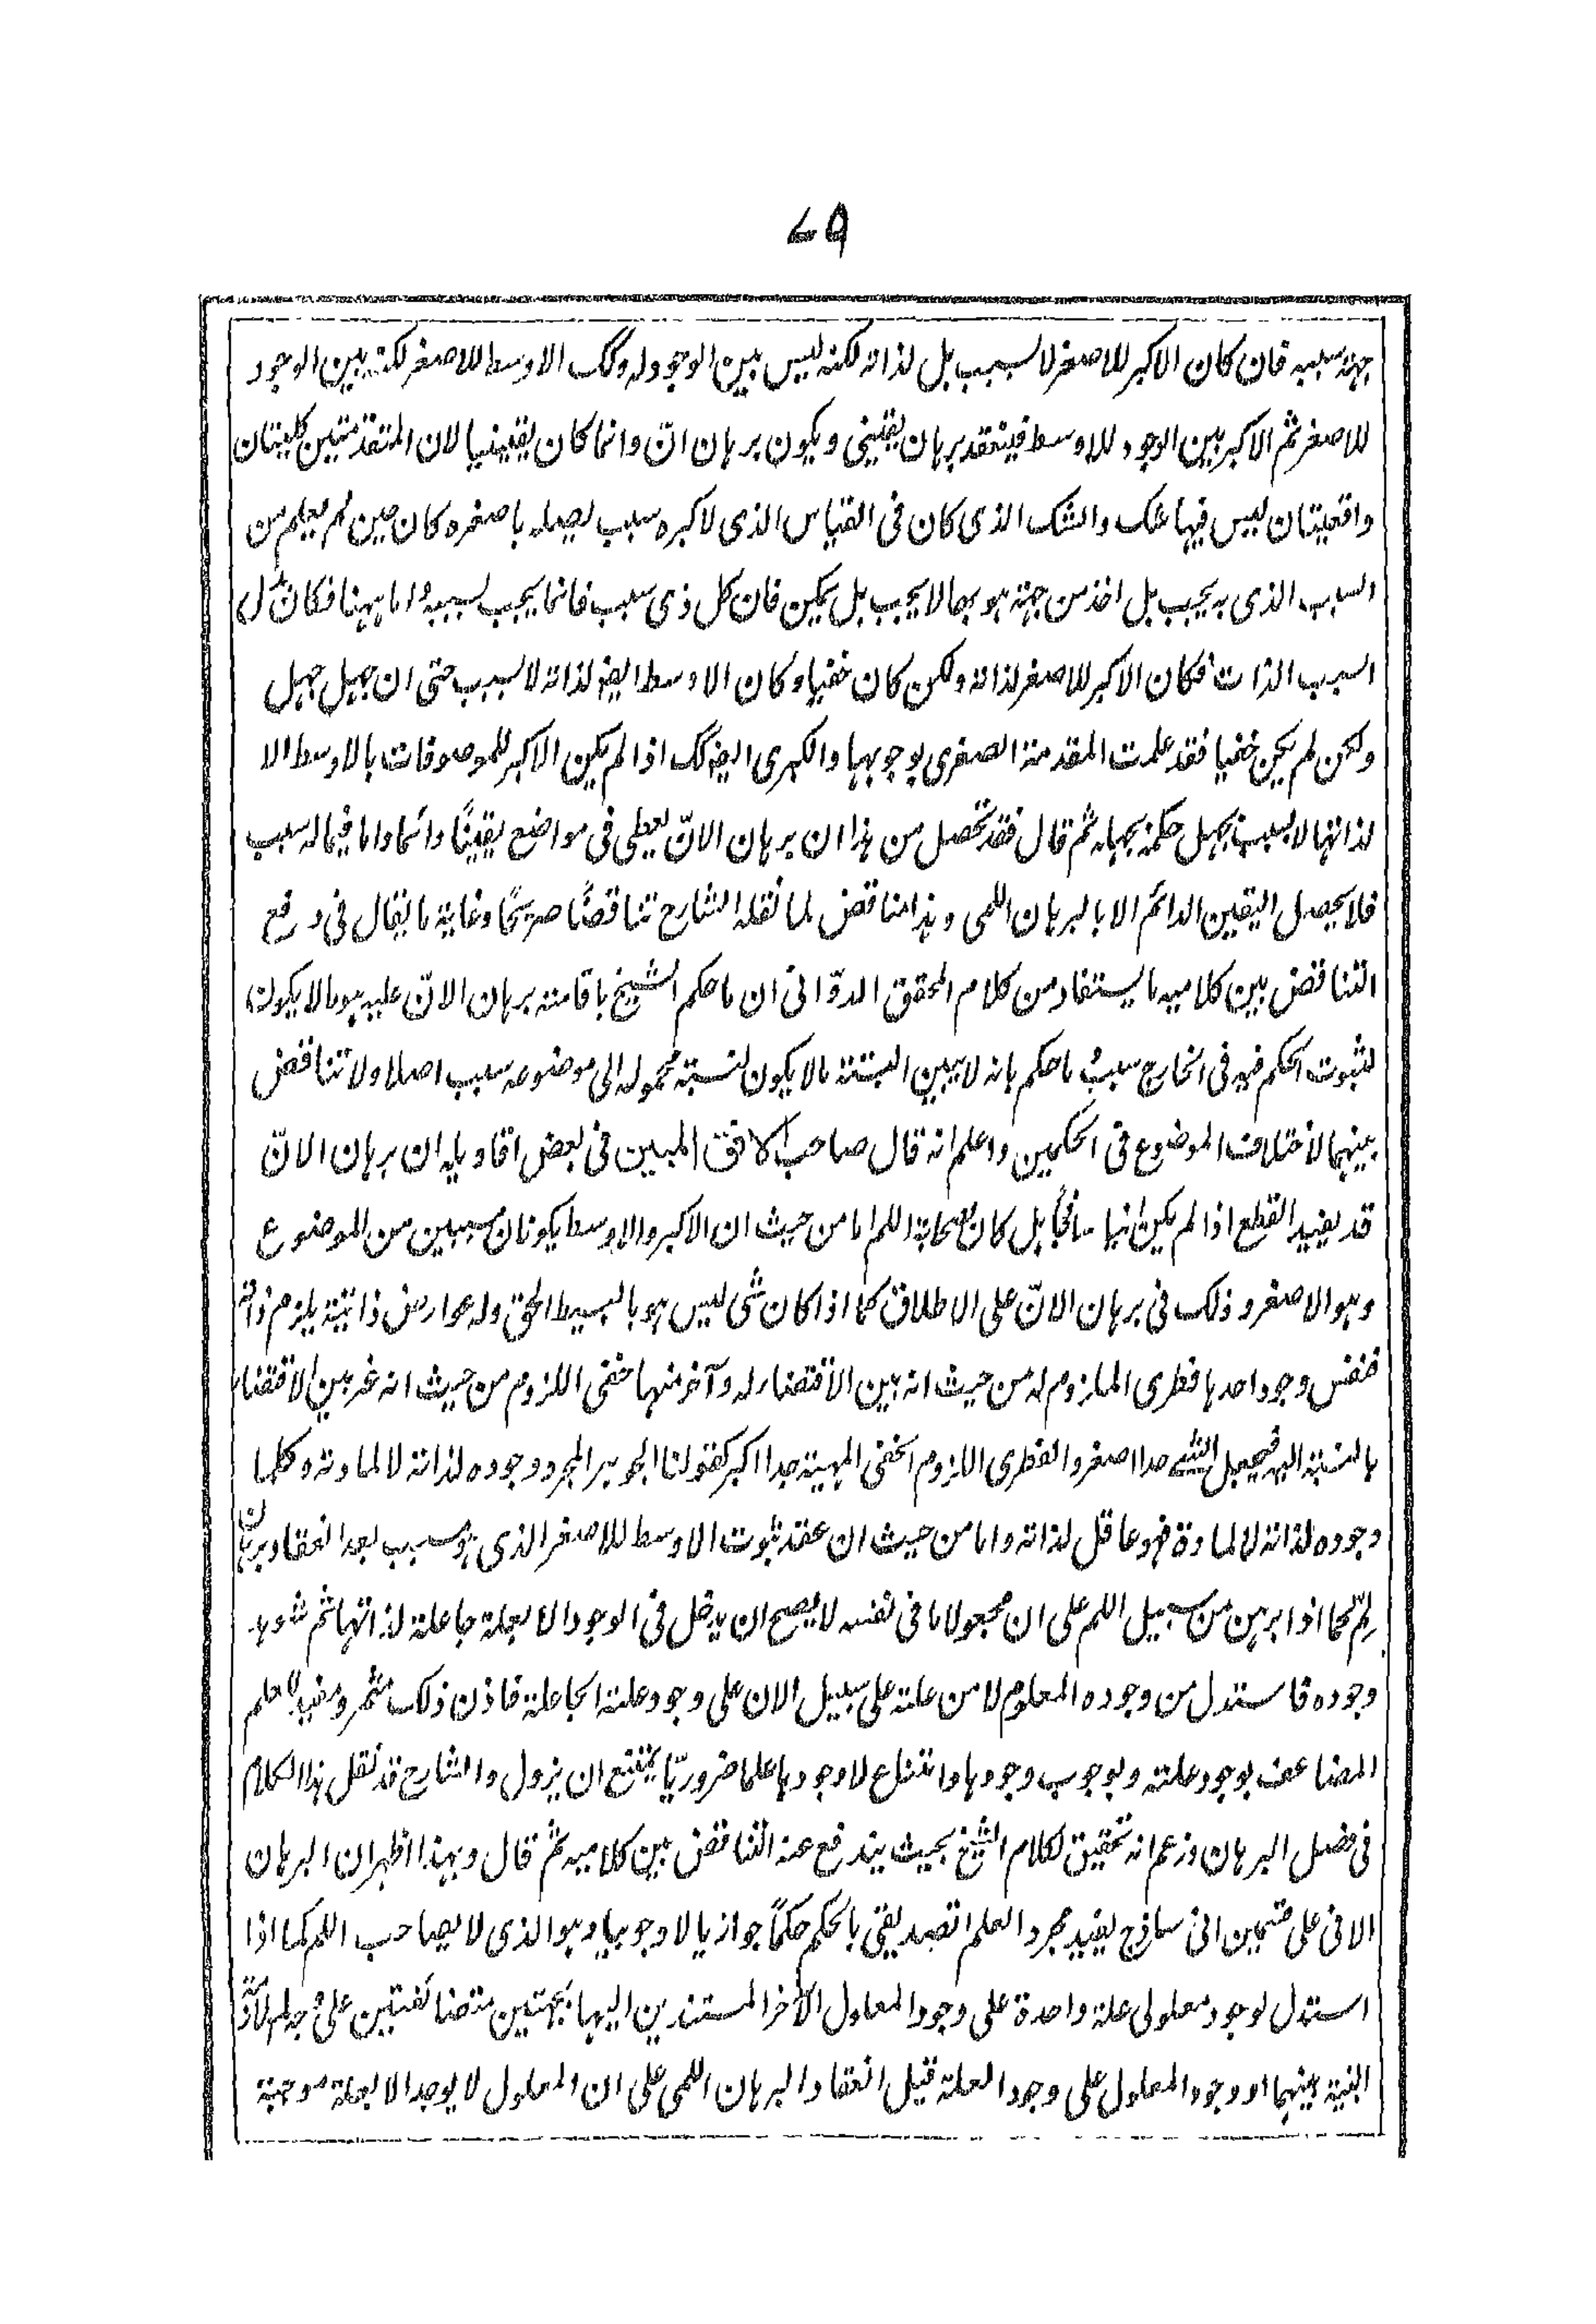 ٧٩
جهة سببه فان كان الاكبر للاصغر لا لسبب بل لذاته لكنه ليس بين الوجود له وكك الاوسط للاصغر لكنه بين الوجود
للاصغر ثم الاكبر بين الوجود للاوسط فينعقد برهان يقيني ويكون برهان انّ وانما كان يقينيا لان المتقدمتين كليتان
واقعيتان ليس فيها شك والشك الذى كان فى القياس الذى لاكبره سبب يصله باصغره كان حين لم يعلم من
السبب الذى به يجب بل اخذ من جهة هو بها لا يجب بل يمكن فان كل ذى سبب فانما يجب لسببه واما ههنا فكان بدل
السبب الذات فكان الاكبر للاصغر لذاته ولكن كان خفيا وكان الاوسط ايض لذاته لا لسبب حتى ان جهل جهل
ولكن لم يكن خفيا فقد علمت المقدمة الصغرى بوجوبها والكبرى ايض كك اذا لم يكن الاكبر للموصوفات بالاوسط الا
لذاتها لا لسبب يجهل حكمه بجهله ثم قال فقد تحصل من هذا ان برهان الانّ يعطى فى مواضع يقينًا دائما واما فيما له سبب
فلا يحصل اليقين الدائم الا بالبرهان اللمى وهذا مناقض لما نقله الشارح تناقضًا صريحًا وغاية ما يقال فى دفع
التناقض بين كلاميه ما يستفاد من كلام المحقق الدوّانى ان ما حكم الشيخ باقامة برهان الانّ عليه هو ما لا يكون
لثبوت الحكم فيه فى الخارج سبب وما حكم بانه لا يبين البتة ما لا يكون لنسبة محموله الى موضوعه سبب اصلا ولا تناقض
بينهما لاختلاف الموضوع فى الحكمين واعلم انه قال صاحب الافق المبين فى بعض اقاويله ان برهان الانّ
قد يفيد القطع اذا لم يكن انيا ساذجًا بل كان بمصاحبة اللم اما من حيث ان الاكبر والاوسط يكونان مسببين من الموضوع
وهو الاصغر وذلك فى برهان الانّ على الاطلاق كما اذا كان شى ليس هو بالبسيط الحق وله عوارض ذاتية يلزم ذاته
فنفس وجود احدها فطرى الملزوم له من حيث انه بين الاقتضاء له وآخر منها خفى اللزوم من حيث انه غير بين الاقتضاء
بالنسبة اليه فيجعل الشئ حدا اصغر والفطرى اللزوم الخفى المهية حدا اكبر كقولنا الجوهر المجرد وجوده لذاته لا لمادته وكلما
وجوده لذاته لا لمادة فهو عاقل لذاته واما من حيث ان عقد ثبوت الاوسط للاصغر الذى هو سبب بعد انعقاد برهان
لمّ كما اذا برهن من سبيل اللم على ان مجعولا ما فى نفسه لا يصح ان يدخل فى الوجود الا بعلة جاعلة لذاتها ثم شوهد
وجوده فاستدل من وجوده المعلوم لا من علته على سبيل الان على وجود علته الجاعلة فاذن ذلك مثمر ومفيد للعلم
المضاعف بوجود علته وبوجوب وجودها وامتناع لا وجودها علما ضروريّا يمتنع ان يزول والشارح قد نقل هذا الكلام
فى فصل البرهان وزعم انه تحقيق لكلام الشيخ بحيث يندفع عنه التناقض بين كلاميه ثم قال وبهذا اظهر ان البرهان
الانى على قسمين انى ساذج يفيد مجرد العلم التصديقى بالحكم حكمًا جوازيا لا وجوبيا وهو الذى لا يصاحب اللم كما اذا
استدل لوجود معلولى علة واحدة على وجود المعلول الآخر المستندين اليها بجهتين متضائفتين على
البنية بينهما او وجود المعلول على وجود العلة قبل انعقاد البرهان اللمى على ان المعلول لا يوجد الا بعلة موجبة